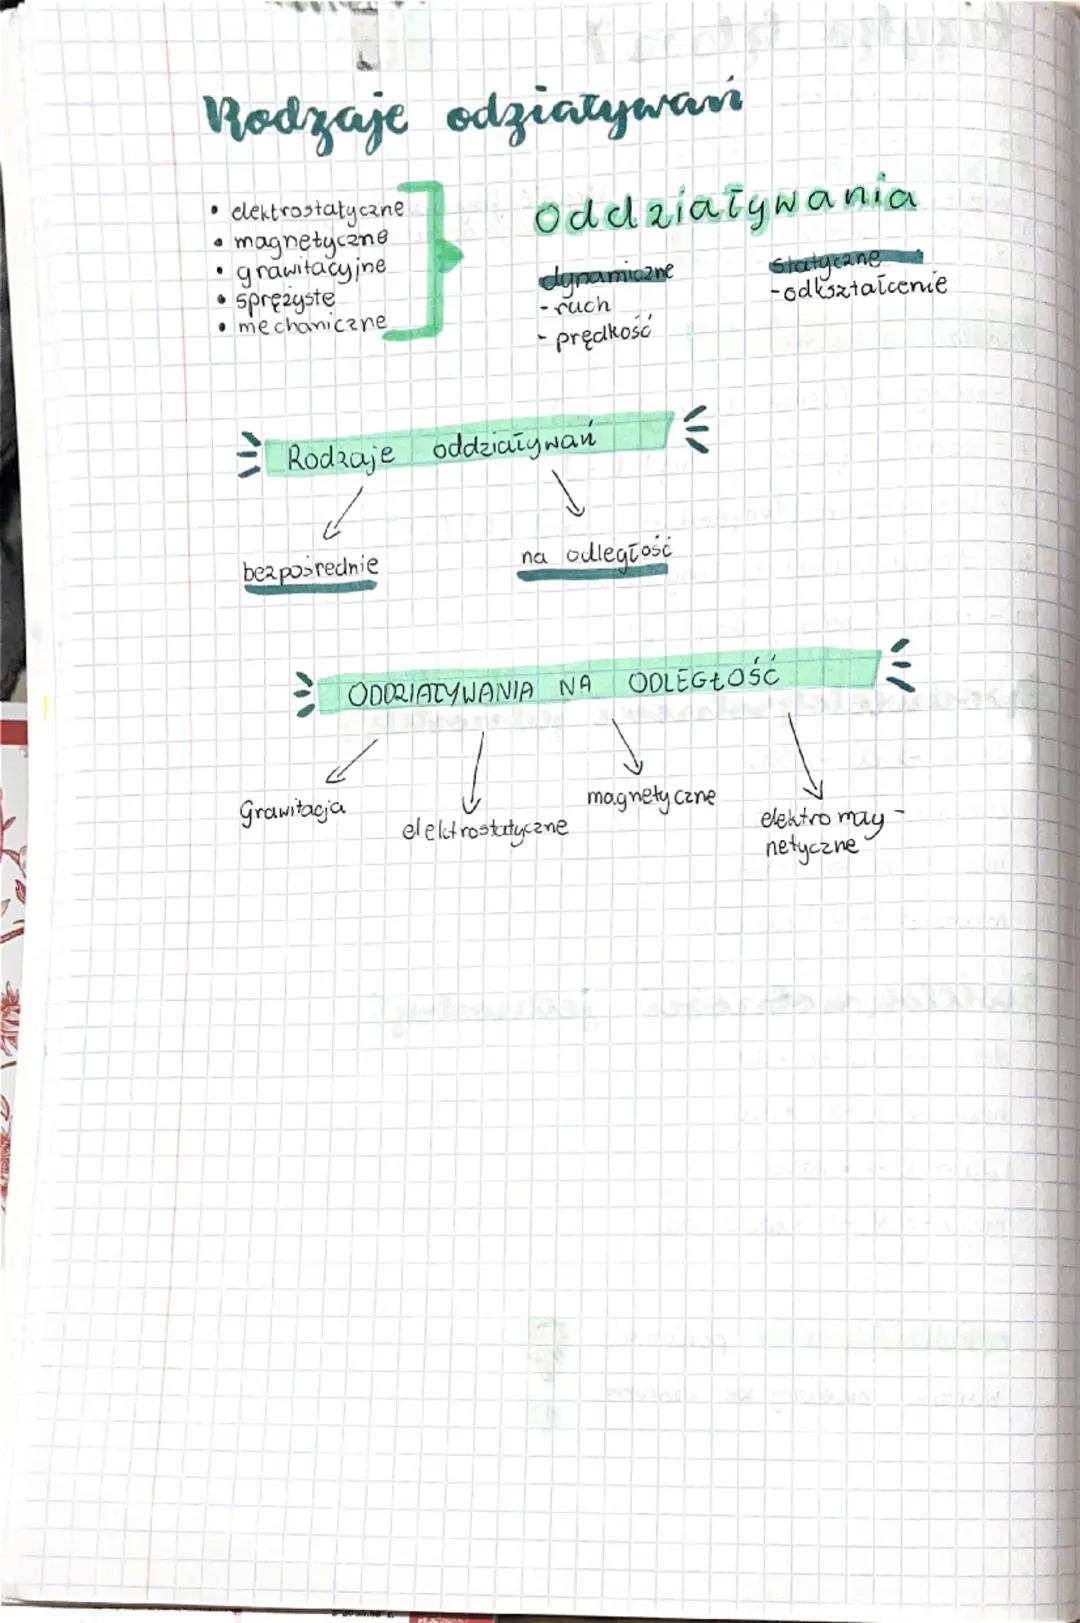 Rodzaje odziaływań
• elektrostatyczne
• magnetyczne
• grawitacyjne
• sprężyste
• mechaniczne
Oddziaływania
dynamiczne
- ruch
- prędkość
statyczne
- odkształcenie
Rodzaje oddziaływań
bezpośrednie
na odległość
ODDZIAŁYWANIA NA ODLEGŁOŚĆ
Grawitacja
elektrostatyczne
magnetyczne
elektromag-
netyczne